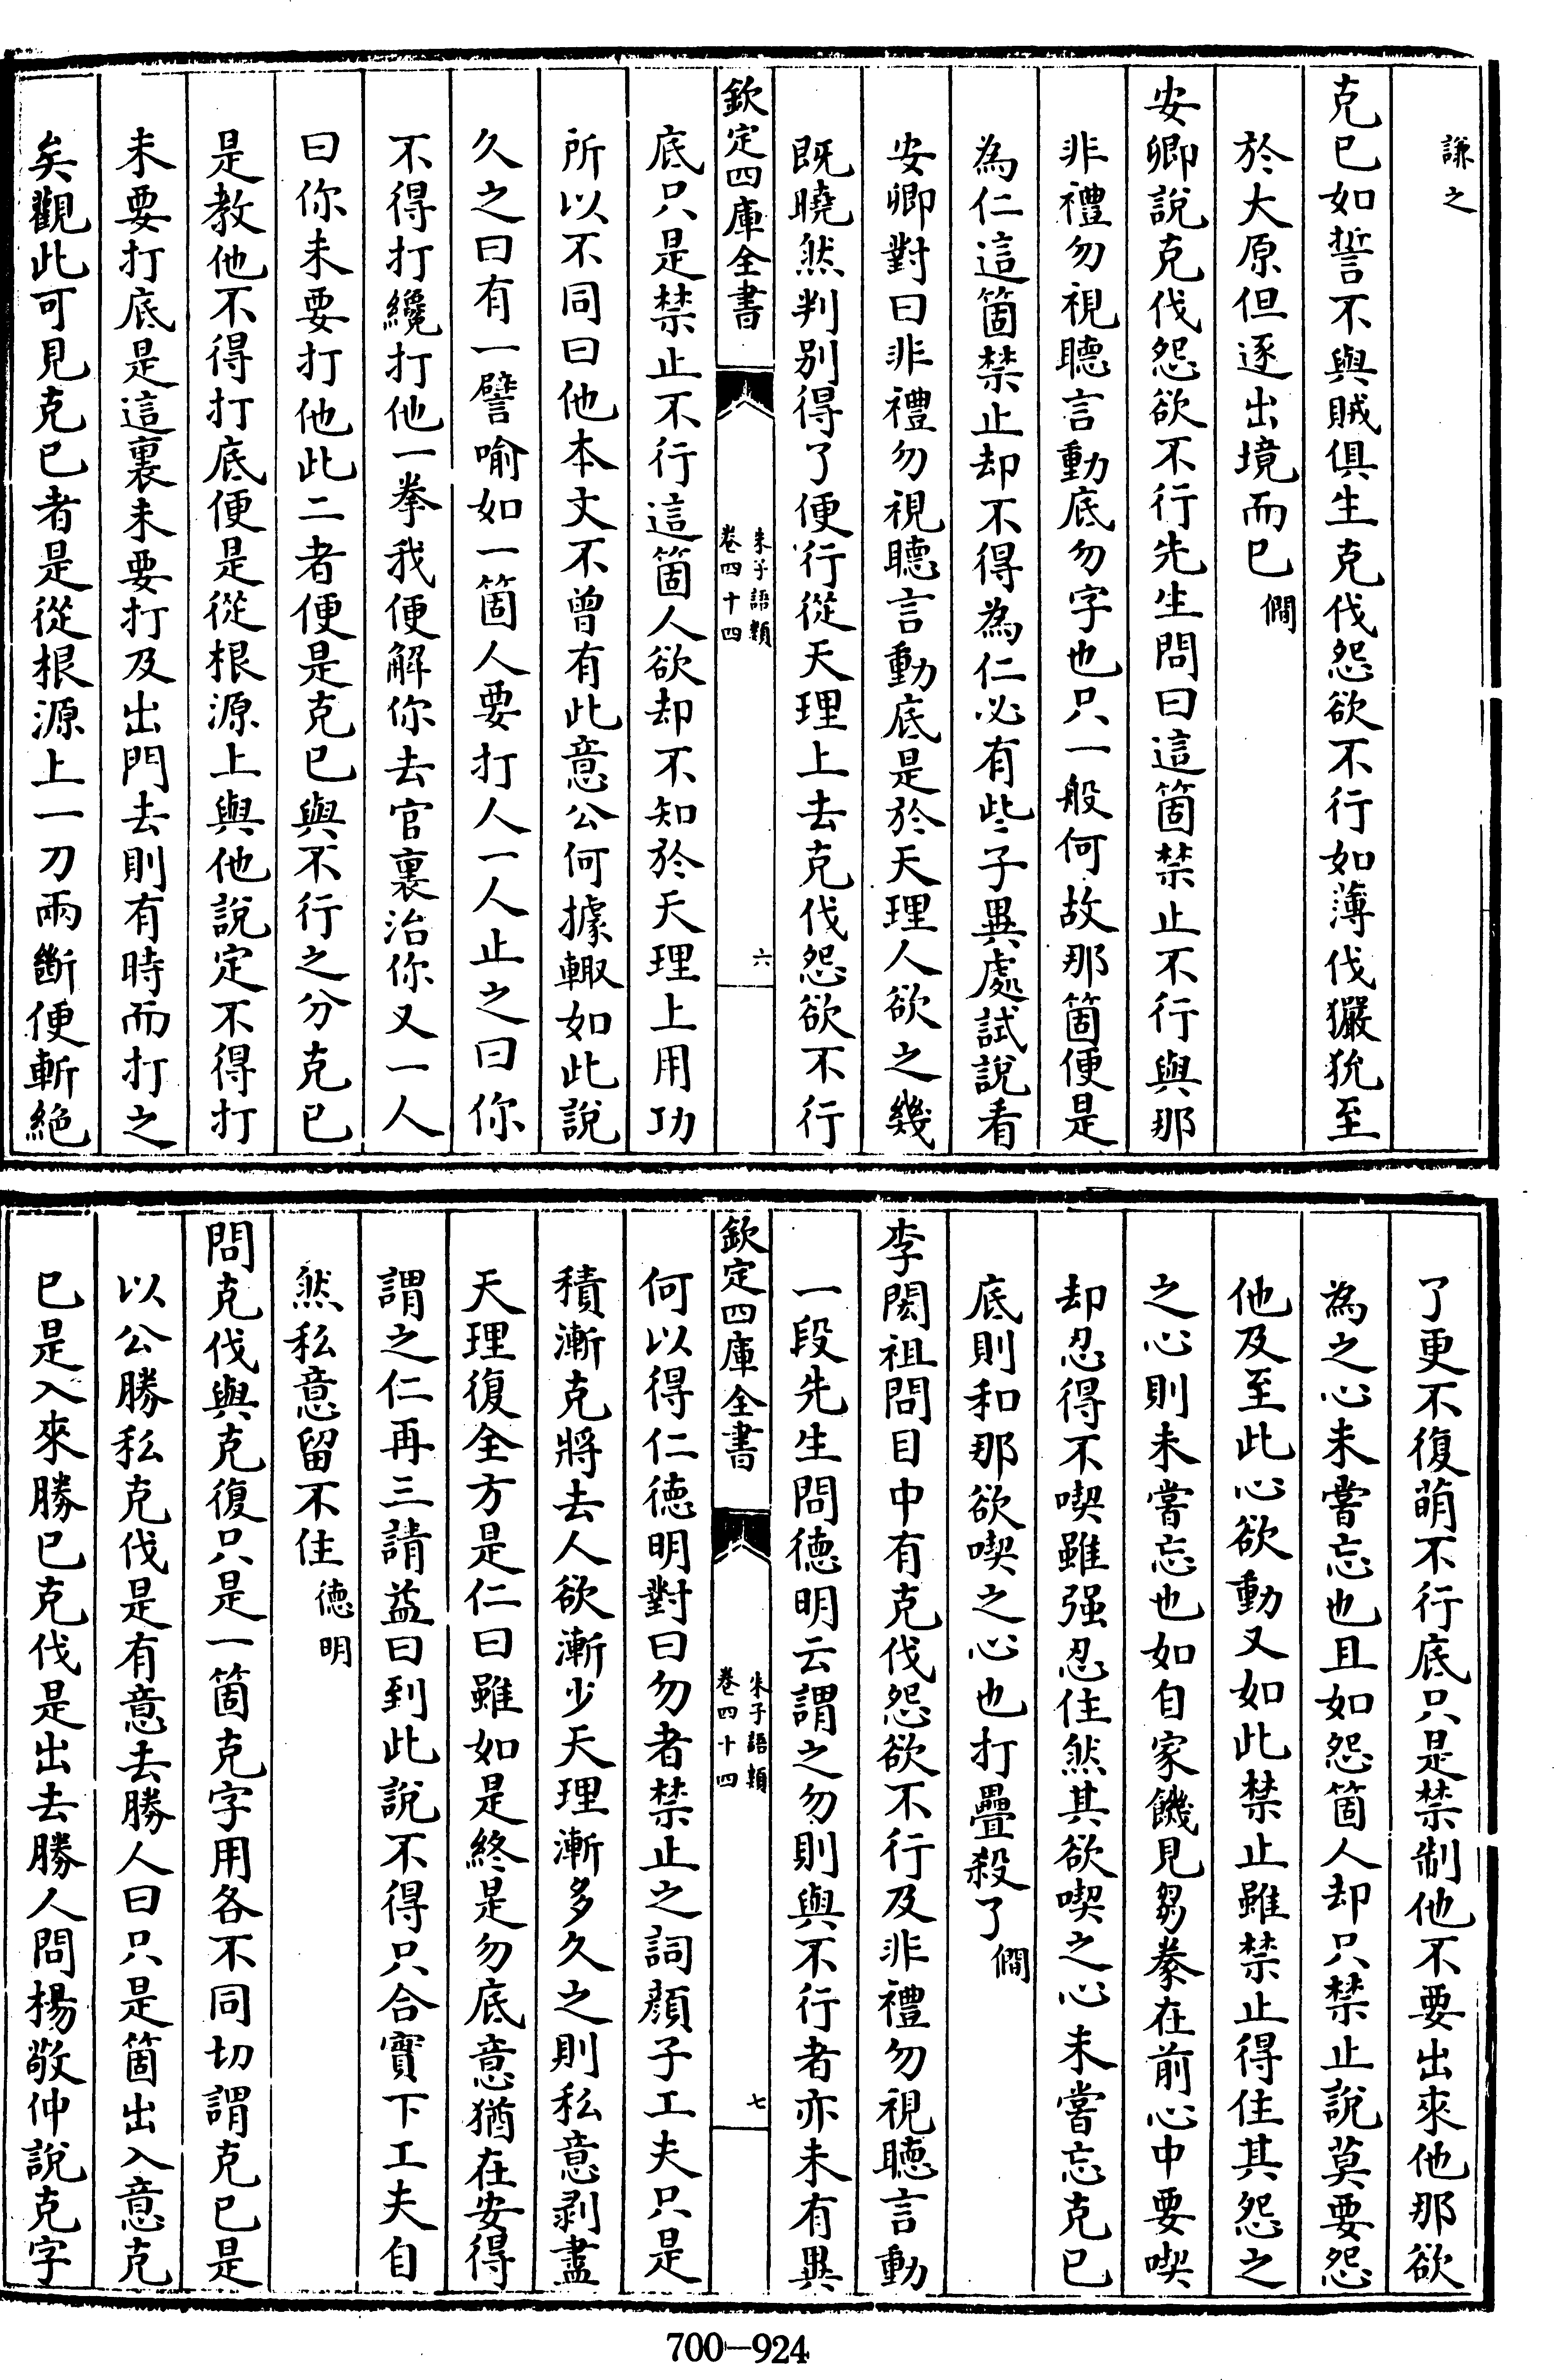 謙之
克已如誓不與賊俱生克伐怨欲不行如薄伐玁狁至
於大原但逐出境而已僩
安卿說克伐怨欲不行先生問曰這箇禁止不行與那
非禮勿視聽言動底勿字也只一般何故那箇便是
為仁這箇禁止却不得為仁必有些子異處試說看
安卿對曰非禮勿視聽言動底是於天理人欲之幾
既曉然判别得了便行從天理上去克伐怨欲不行
欽定四庫全書
朱子語類
卷四十四
六
底只是禁止不行這箇人欲却不知於天理上用功
所以不同曰他本文不曾有此意公何據輙如此說
久之曰有一譬喻如一箇人要打人一人止之曰你
不得打纔打他一拳我便解你去官裏治你又一人
曰你未要打他此二者便是克已與不行之分克已
是教他不得打底便是從根源上與他說定不得打
未要打底是這裏未要打及出門去則有時而打之
矣觀此可見克已者是從根源上一刀兩斷便斬絶
了更不復萌不行底只是禁制他不要出來他那欲
為之心未嘗忘也且如怨箇人却只禁止說莫要怨
他及至此心欲動又如此禁止雖禁止得住其怨之
之心則未嘗忘也如自家饑見芻豢在前心中要喫
却忍得不喫雖强忍住然其欲喫之心未嘗忘克已
底則和那欲喫之心也打疊殺了僩
李閎祖問目中有克伐怨欲不行及非禮勿視聽言動
一段先生問德明云謂之勿則與不行者亦未有異
欽定四庫全書
朱子語類
卷四十四
七
何以得仁德明對曰勿者禁止之詞顔子工夫只是
積漸克將去人欲漸少天理漸多久之則私意剥盡
天理復全方是仁曰雖如是終是勿底意猶在安得
謂之仁再三請益曰到此說不得只合實下工夫自
然私意留不住德明
問克伐與克復只是一箇克字用各不同切謂克已是
以公勝私克伐是有意去勝人曰只是箇出入意克
已是入來勝已克伐是出去勝人問楊敬仲說克字
700-924